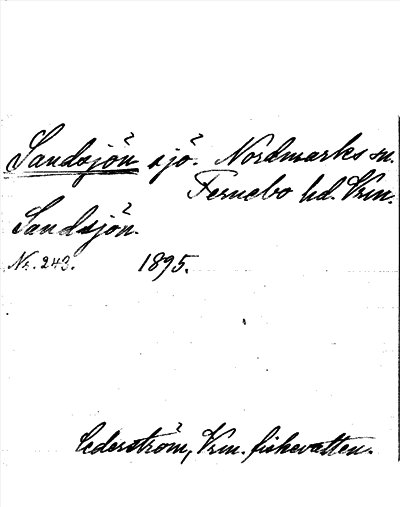 Sandsjön sjö. Nordmarks sn.
Fernebo hd. Vrm.
Sandsjön.
Nr. 243. 1895.
Cederström, Vrm. fiskevatten.